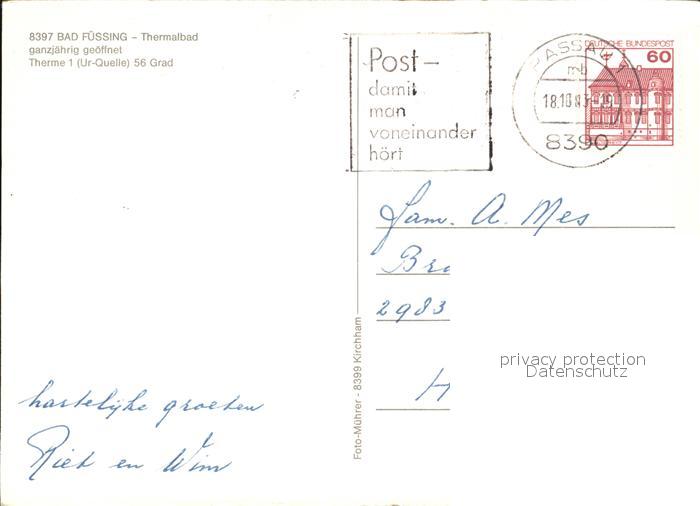 8397 BAD FÜSSING – Thermalbad
ganzjährig geöffnet
Therme 1 (Ur-Quelle) 56 Grad
Post –
damit
man
voneinander
hört
PASSAU
mb
18.10.83
8390
DEUTSCHE BUNDESPOST
60
Fam. A. Mes
Bro
2983
H
privacy protection
Datenschutz
Foto-Mührer - 8399 Kirchham
hartelijke groeten
Riet en Wim